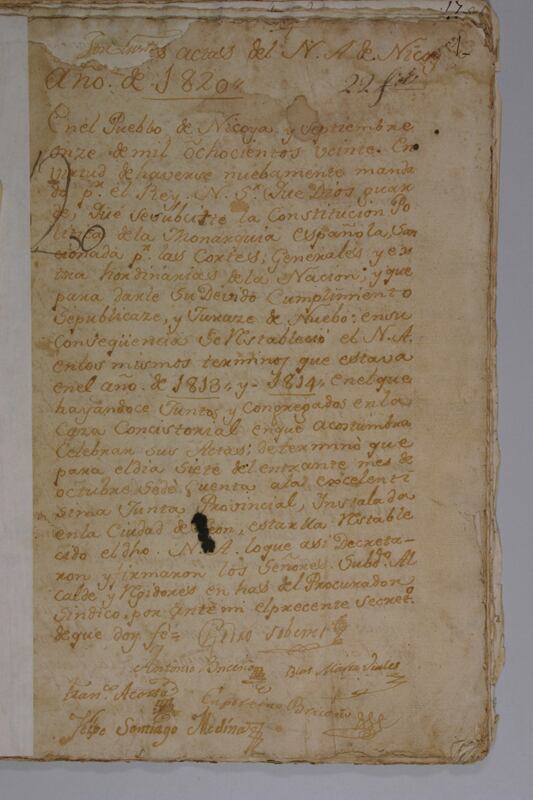 17
1
actas del N. A de Nicoya
Año. de 1820.
22 fs
En el Pueblo de Nicoya y Septiembre
onze de mil ôchocientos veinte. En
virtud de haverse nuebamente manda
do pr. el Rey. N. Sr. Que Dios guar
de; Que se la Constitucion Po
litica de la Monarquia española, San
cionada pr. las Cortes; Generales y ex
tra hordinarias de la Nacion; y que
para darle Su Devido Cumplimiento
Sepublicaze, y Juraze de Nuebo: en su
Conseqüencia Se Restableció el N. A.
en los mismos terminos que estava
en el año. de 1813 y 1814 en el que
hayandoce Juntos y congregados en la
Caza Concistorial en que acostumbra
Celebrar sus Actas; determinò que
para el dia Siete del entrante mes de
octubre Sedè Cuenta ala excelenti
sima Junta Provincial, Instalada
en la Ciudad de Leon, estar Restable
cido el dho. N. A. loque asi Decreta-
ron y firmaron los Señores Subdo. Al
calde y Regidores en has del Procurador
Sindico por ante mi el precente Secreto.
de que doy fé=
Antonio Briceño
Blas
Franco. Acosta
Briceño
Felipe Santiago Medina